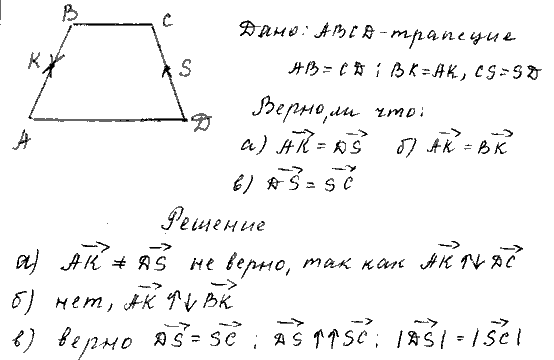 B C
K S
A D
Дано: ABCD - трапеция
AB = CD ; BK = AK, CS = SD
Верно, ли что:
а) AK⃗ = DS⃗ б) AK⃗ = BK⃗
в) DS⃗ = SC⃗
Решение
а) AK⃗ ≠ DS⃗ не верно, так как AK⃗ ↑↓ DC⃗
б) нет, AK⃗ ↑↓ BK⃗
в) верно DS⃗ = SC⃗ ; DS⃗ ↑↑ SC⃗ ; |DS⃗| = |SC⃗|